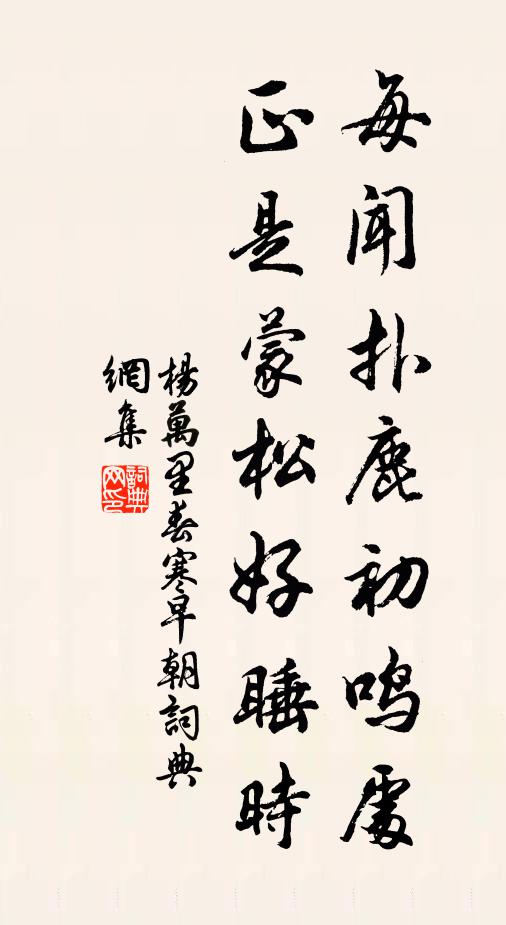 每聞扑鹿初鳴處
正是蒙松好睡時
楊萬里春寒早朝詞典
網集
詞典
网印